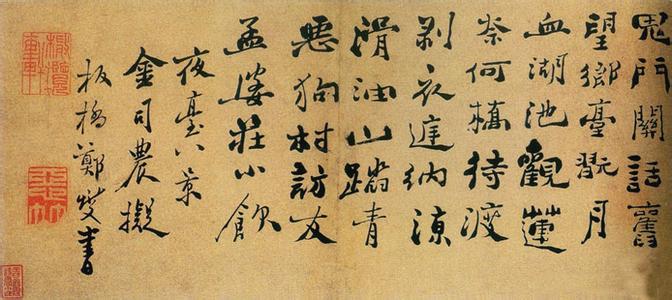 鬼門關話舊
望鄉臺翫月
血湖池觀蓮
奈何橋待渡
剥衣廷納涼
滑油山踏青
惡狗村訪友
孟婆莊小飲
夜臺八景
金司農擬
板橋鄭燮書